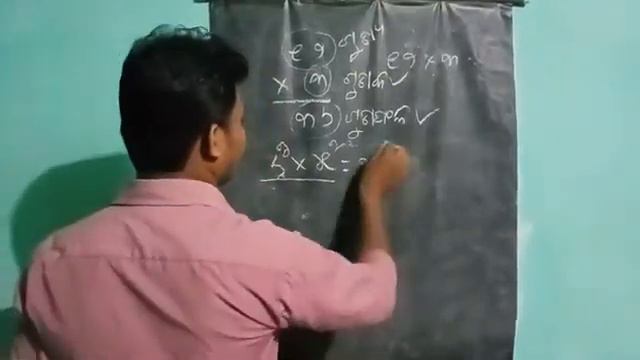 ୧୨ ଗୁଣ୍ୟ ୧୨ × ୩
× ୩ ଗୁଣକ ✓
୩୬ ଗୁଣଫଳ ✓